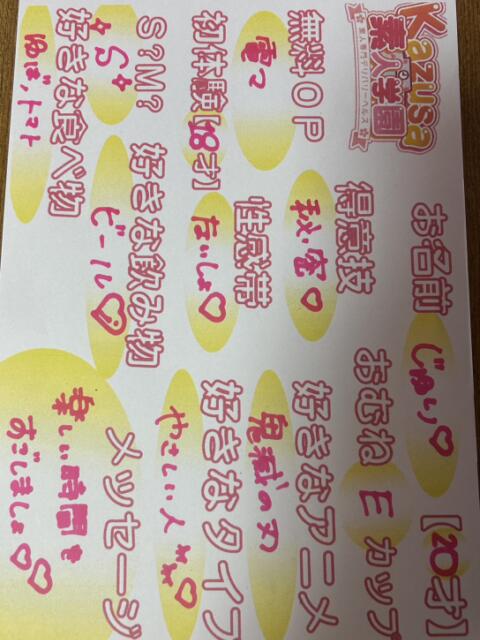 Kazusa
素人学園
素人専門デリバリーヘルス
お名前 じゅり♡ 【20才】
おむね E カップ
得意技 秘密♡
好きなアニメ 鬼滅の刃
無料OP 電マ
性感帯 ないしょ♡
好きなタイプ やさしい人
初体験【18才】
好きな飲み物 ビール♡
S?M? S
好きな食べ物 ゆば、トマト
メッセージ
楽しい時間を
すごしましょ♡♡